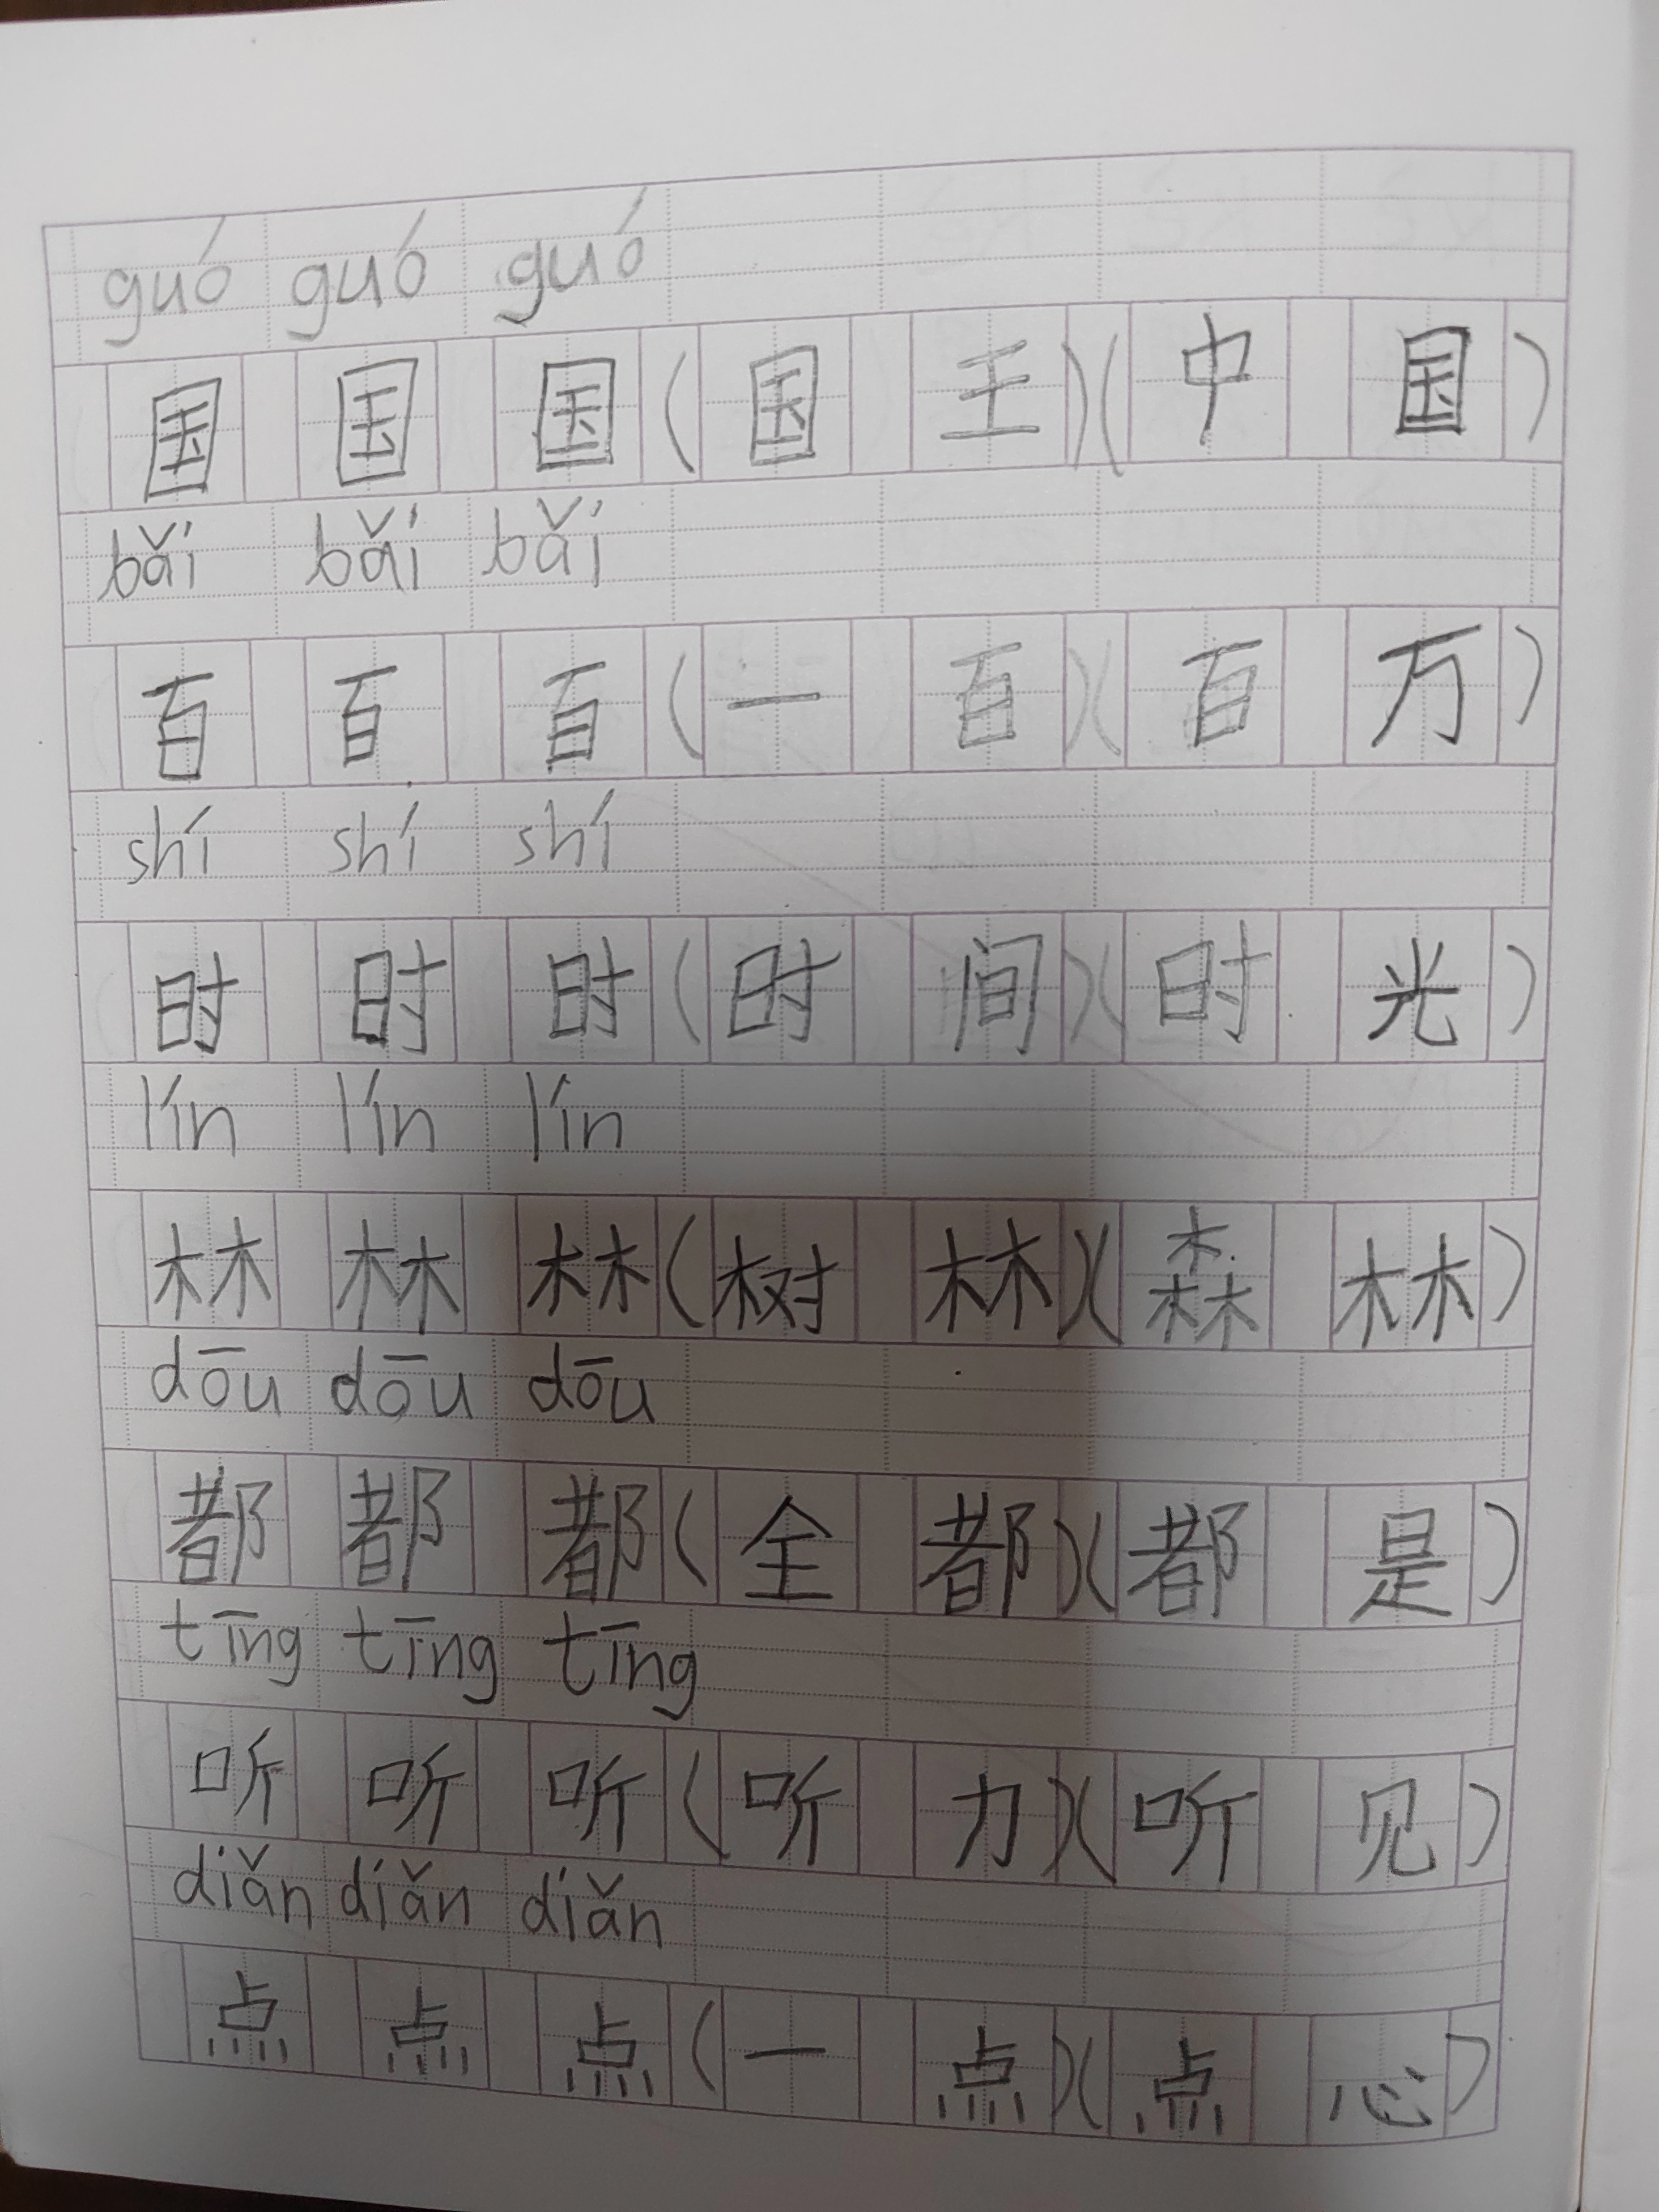 guó guó guó
国 国 国 (国 王)(中 国)
bǎi bǎi bǎi
百 百 百 (一 百)(百 万)
shí shí shí
时 时 时 (时 间)(时 光)
lín lín lín
林 林 林 (树 林)(森 林)
dōu dōu dōu
都 都 都 (全 都)(都 是)
tīng tīng tīng
听 听 听 (听 力)(听 见)
diǎn diǎn diǎn
点 点 点 (一 点)(点 心)